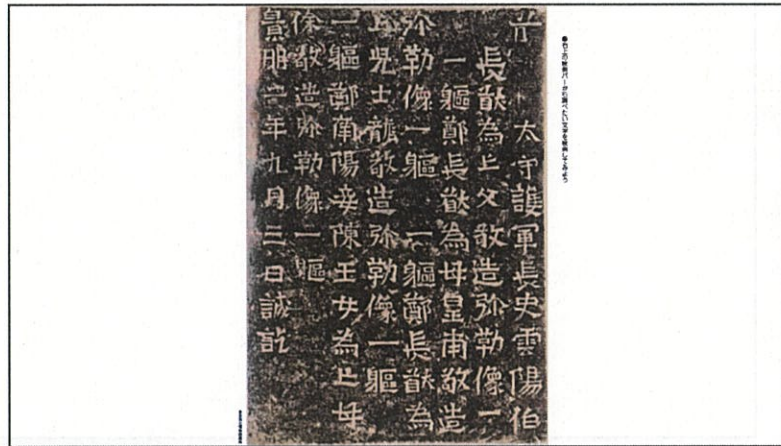 ●右上の検索バーから調べたい文字を検索してみよう
太守護軍長史雲陽伯
長猷為亡父敬造弥勒像一
一軀鄭長猷為母皇甫敬造
弥勒像一軀 一軀鄭長猷為
亡児士龍敬造弥勒像一軀
一軀鄭南陽妾陳玉女為亡母
徐敬造弥勒像一軀
景明二年九月三日誡訖